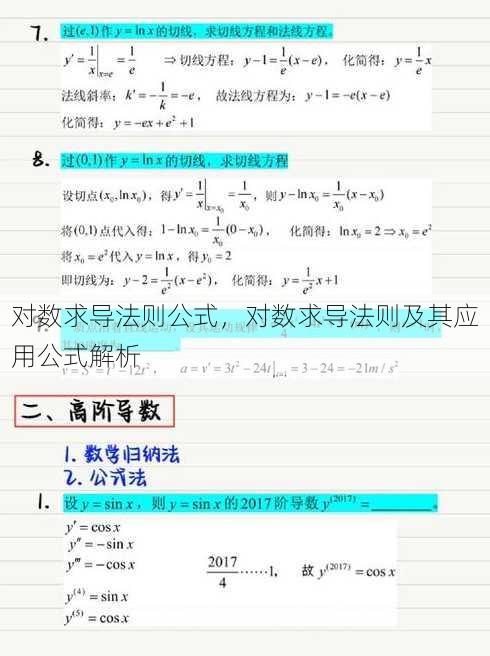 7. 过(e,1)作 y = ln x 的切线，求切线方程和法线方程。
y' = 1/x |x=e = 1/e ⇒ 切线方程：y − 1 = 1/e (x − e)， 化简得：y = 1/e x
法线斜率：k' = −1/k = −e， 故法线方程为：y − 1 = −e(x − e)
化简得：y = −ex + e² + 1
8. 过(0,1)作 y = ln x 的切线，求切线方程
设切点(x₀, ln x₀)，得 y' = 1/x |x=x₀ = 1/x₀，则 y − ln x₀ = 1/x₀ (x − x₀)
将(0,1)点代入得：1 − ln x₀ = 1/x₀ (0 − x₀)， 化简得：ln x₀ = 2 ⇒ x₀ = e²
将 x₀ = e² 代入 y = ln x，得 y₀ = 2
即切线为：y − 2 = 1/e² (x − e²)， 化简得：y = 1/e² x + 1
对数求导法则公式，对数求导法则及其应
用公式解析
9.
v = S' = t³ − 12t²， a = v' = 3t² − 24t |t=1 = 3 − 24 = −21m / s²
二、高阶导数
1. 数学归纳法
2. 公式法
1. 设 y = sin x，则 y = sin x 的 2017 阶导数 y⁽²⁰¹⁷⁾ = ________。
y' = cos x
y" = − sin x
y‴ = − cos x
2017/4 ……1， 故 y⁽²⁰¹⁷⁾ = cos x
y⁽⁴⁾ = sin x
y⁽⁵⁾ = cos x